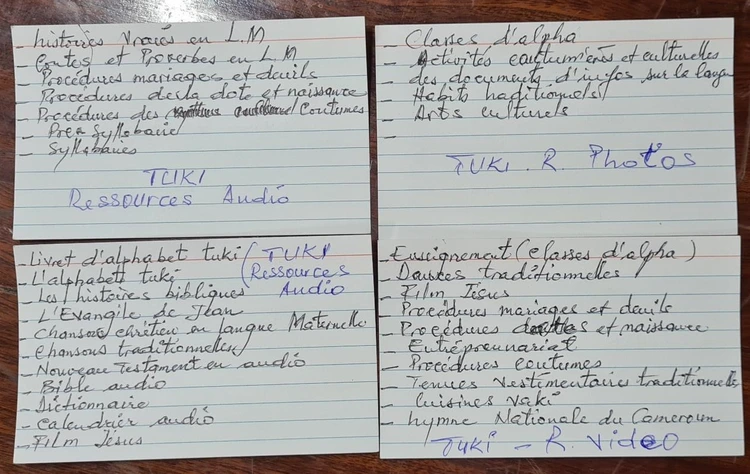 - histoires vraies en L.M
- Contes et Proverbes en L.M
- Procédures mariages et deuils
- Procédures de la dote et naissance
- Procédures des Coutumes
- Pre-Syllabaire
- Syllabaires
TUKI
Ressources Audio
- Classes d'alpha
- Activités coutumières et culturelles
- des documents d'infos sur la langue
- Habits traditionels
- Arts culturels
-
TUKI . R. Photos
- Livret d'alphabet tuki
- L'alphabet tuki
- Les histoires bibliques
- L'Evangile de Jean
- Chansons chrétien en langue Maternelle
- Chansons traditionnelles
- Nouveau Testament en audio
- Bible audio
- Dictionnaire
- Calendrier audio
- Film Jésus
(TUKI
Ressources
Audio
- Enseignement (classes d'alpha)
- Danses traditionnelles
- Film Jésus
- Procédures mariages et deuils
- Procédures et naissance
- Entrépreunariat
- Procédures coutumes
- Tenues Vestimentaires traditionnelles
- Cuisines Vaki
- hymne Nationale du Cameroun
TUKI - R. Video